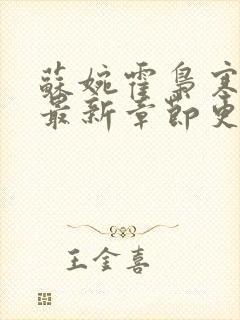 蘇婉霍梟寒
最新章節更
王金喜